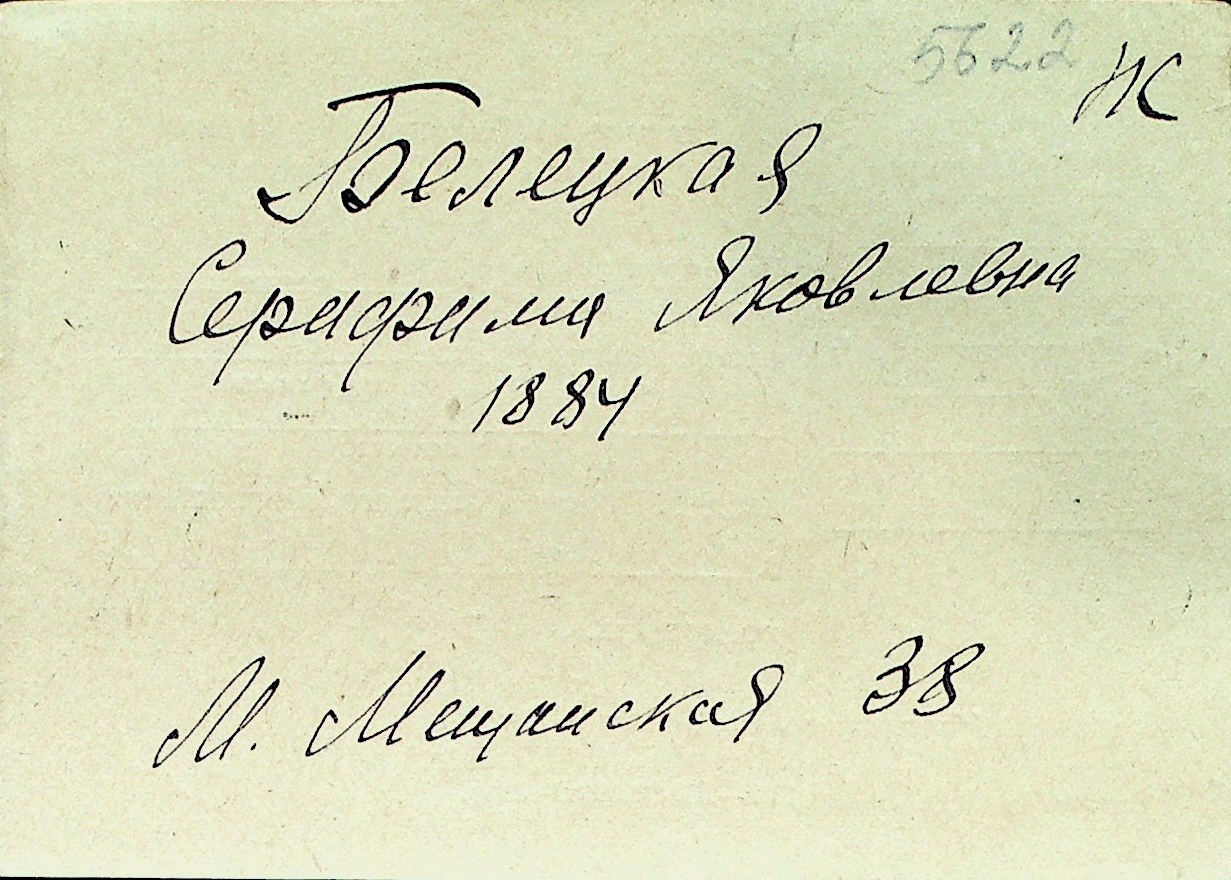 5622
Ж
Белецкая
Серафима Яковлевна
1884
М. Мещанская 38